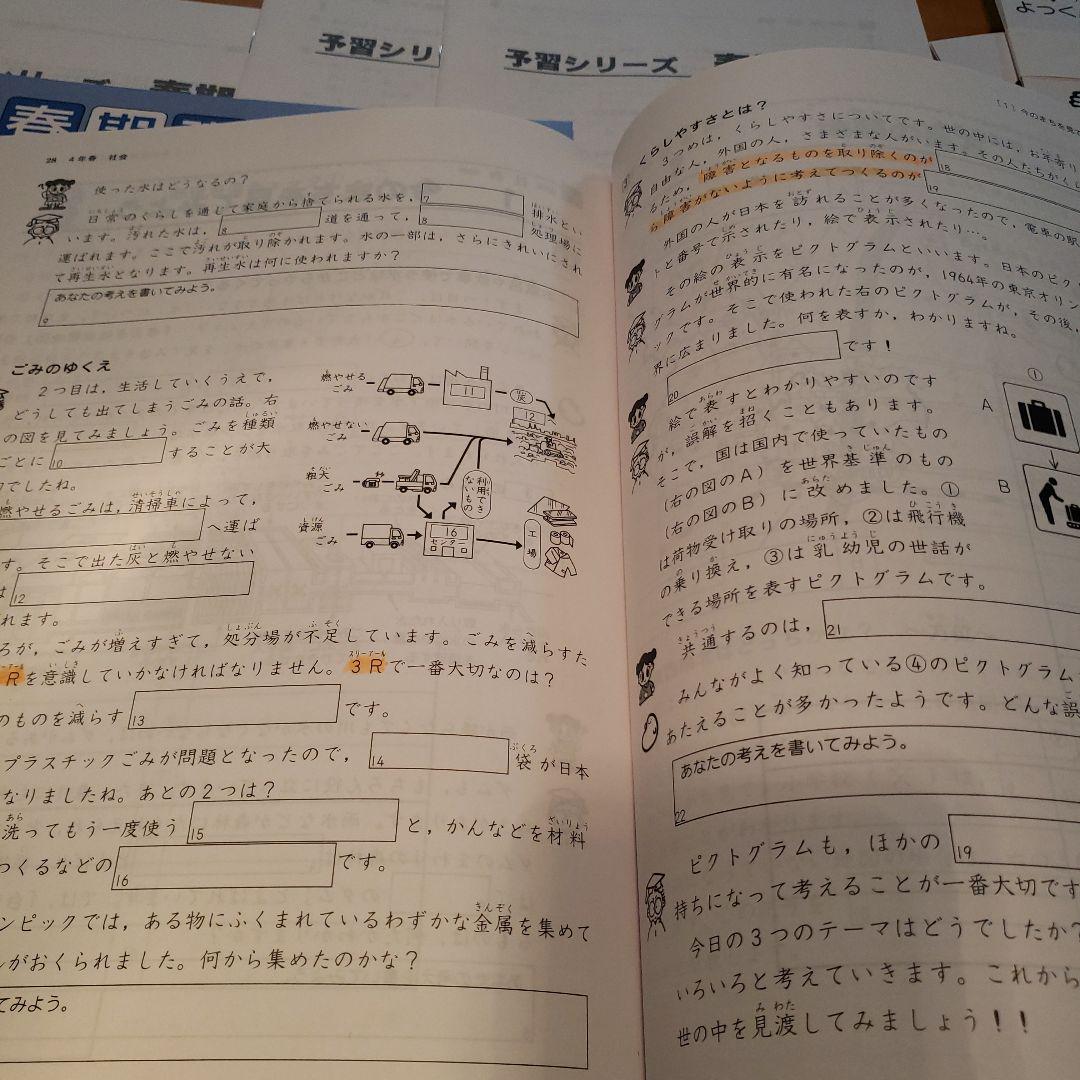 予習シリーズ
予習シリーズ 春
リーズ 春期
よつく
春期
28 4年春 社会
使った水はどうなるの？
日常のくらしを通じて家庭から捨てられる水を， 7 排水とい
います。汚れた水は， 8 道を通って， 8 処理場に
運ばれます。ここで汚れが取り除かれます。水の一部は，さらにきれいにされ
て再生水となります。再生水は何に使われますか？
あなたの考えを書いてみよう。
9
ごみのゆくえ
2つ目は，生活していくうえで，
どうしても出てしまうごみの話。右
の図を見てみましょう。ごみを種類
ごとに 10 することが大
でしたね。
燃やせるごみは，清掃車によって，
へ運ば
す。そこで出た灰と燃やせない
は 12
れます。
ろが，ごみが増えすぎて，処分場が不足しています。ごみを減らすた
Rを意識していかなければなりません。3Rで一番大切なのは？
のものを減らす 13 です。
プラスチックごみが問題となったので， 14 袋が日本
なりましたね。あとの2つは？
洗ってもう一度使う 15 と，かんなどを材料
つくるなどの 16 です。
ンピックでは，ある物にふくまれているわずかな金属を集めて
ルがおくられました。何から集めたのかな？
てみよう。
燃やせる
ごみ
11
灰
12
燃やせない
ごみ
粗大
ごみ
利用できないもの
資源
ごみ
16
センター
工場
[1] 今のまちを見て
くらしやすさとは？
3つめは，くらしやすさについてです。世の中には，お年寄り
自由な人，外国の人，さまざまな人がいます。その人たちがくら
るため，障害となるものを取り除くのが 18
ら障害がないように考えてつくるのが 19
外国の人が日本を訪れることが多くなったので，電車の駅
トと番号で示されたり，絵で表示されたり…。
その絵の表示をピクトグラムといいます。日本のピク
グラムが世界的に有名になったのが，1964年の東京オリン
ックです。そこで使われた右のピクトグラムが，その後，
界に広まりました。何を表すか，わかりますね。
20 です！
絵で表すとわかりやすいのです
が，誤解を招くこともあります。
そこで，国は国内で使っていたもの
（右の図のA）を世界基準のもの
（右の図のB）に改めました。①
は荷物受け取りの場所，②は飛行機
の乗り換え，③は乳幼児の世話が
できる場所を表すピクトグラムです。
共通するのは， 21
①
A
B
みんながよく知っている④のピクトグラム
あたえることが多かったようです。どんな誤
あなたの考えを書いてみよう。
22
ピクトグラムも，ほかの 19
持ちになって考えることが一番大切です
今日の3つのテーマはどうでしたか？
いろいろと考えていきます。これから
世の中を見渡してみましょう！！